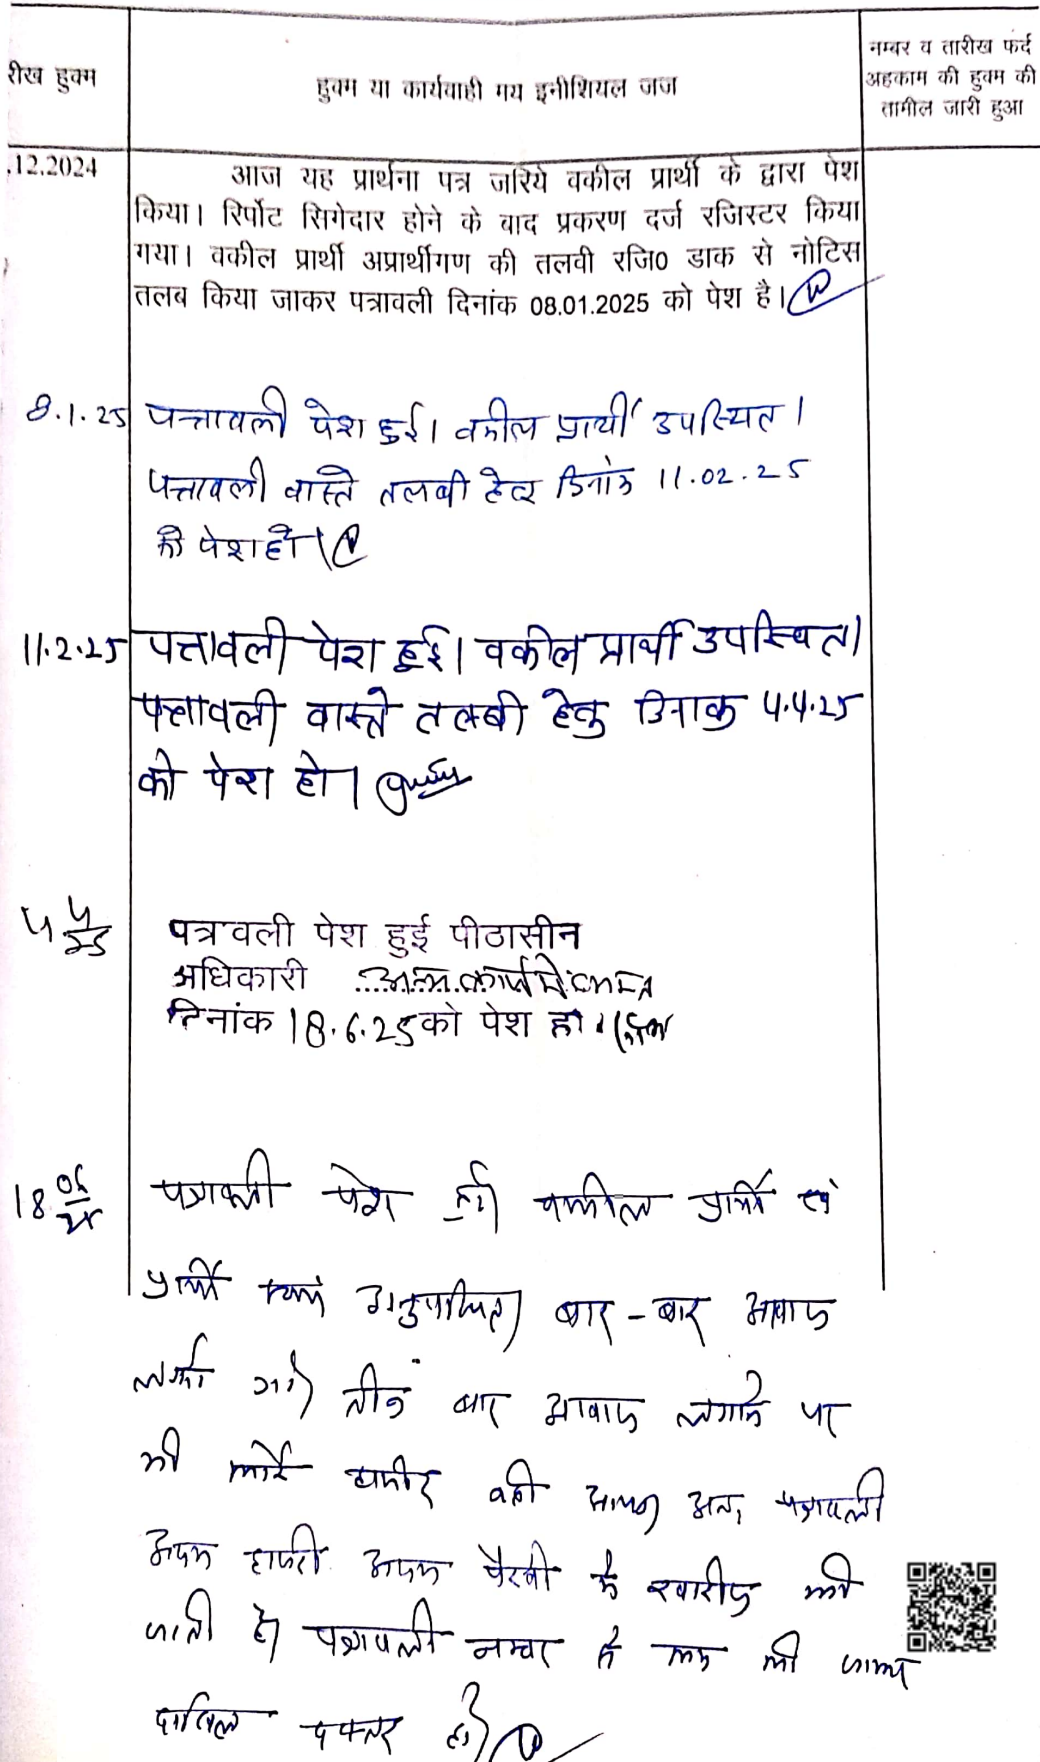 रीख हुक्म
हुक्म या कार्यवाही मय इनीशियल जज
नम्बर व तारीख फर्द
अहकाम की हुक्म की
तामील जारी हुआ
.12.2024
आज यह प्रार्थना पत्र जरिये वकील प्रार्थी के द्वारा पेश
किया। रिर्पोट सिगेदार होने के बाद प्रकरण दर्ज रजिस्टर किया
गया। वकील प्रार्थी अप्रार्थीगण की तलवी रजि० डाक से नोटिस
तलब किया जाकर पत्रावली दिनांक 08.01.2025 को पेश है।
8.1.25 पत्रावली पेश हुई। वकील प्रार्थी उपस्थित।
पत्रावली वास्ते तलबी हेतु दिनांक 11.02.25
को पेश हो।
11.2.25 पत्रावली पेश हुई। वकील प्रार्थी उपस्थित।
पत्रावली वास्ते तलबी हेतु दिनाक 4.4.25
को पेश हो।
4 4/25 पत्रवली पेश हुई पीठासीन
अधिकारी
दिनांक 18.6.25 को पेश हो।
18 06/25 पत्रावली पेश हुई। वकील प्रार्थी एवं
प्रार्थी स्वयं अनुपस्थित। बार-बार आवाज
लगाई गई। तीन बार आवाज लगाने पर
भी कोई हाजीर नही आया। अतः पत्रावली
अदम हाजरी अदम पैरवी मे खारीज की
जाती है। पत्रावली नम्बर से कम की जाकर
दाखिल दफ्तर हो।